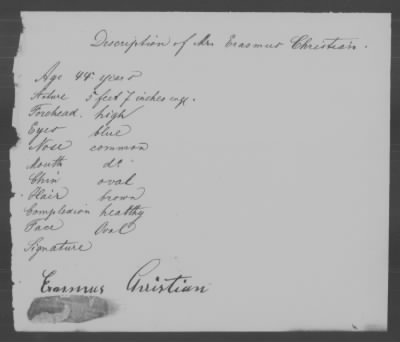 Description of Mr Erasmus Christian.
Age 44 years
Stature 5 feet 7 inches eng.
Forehead. high
Eyes blue
Nose common
Mouth do
Chin oval
Hair brown
Complexion healthy
Face Oval
Signature
Erasmus Christian